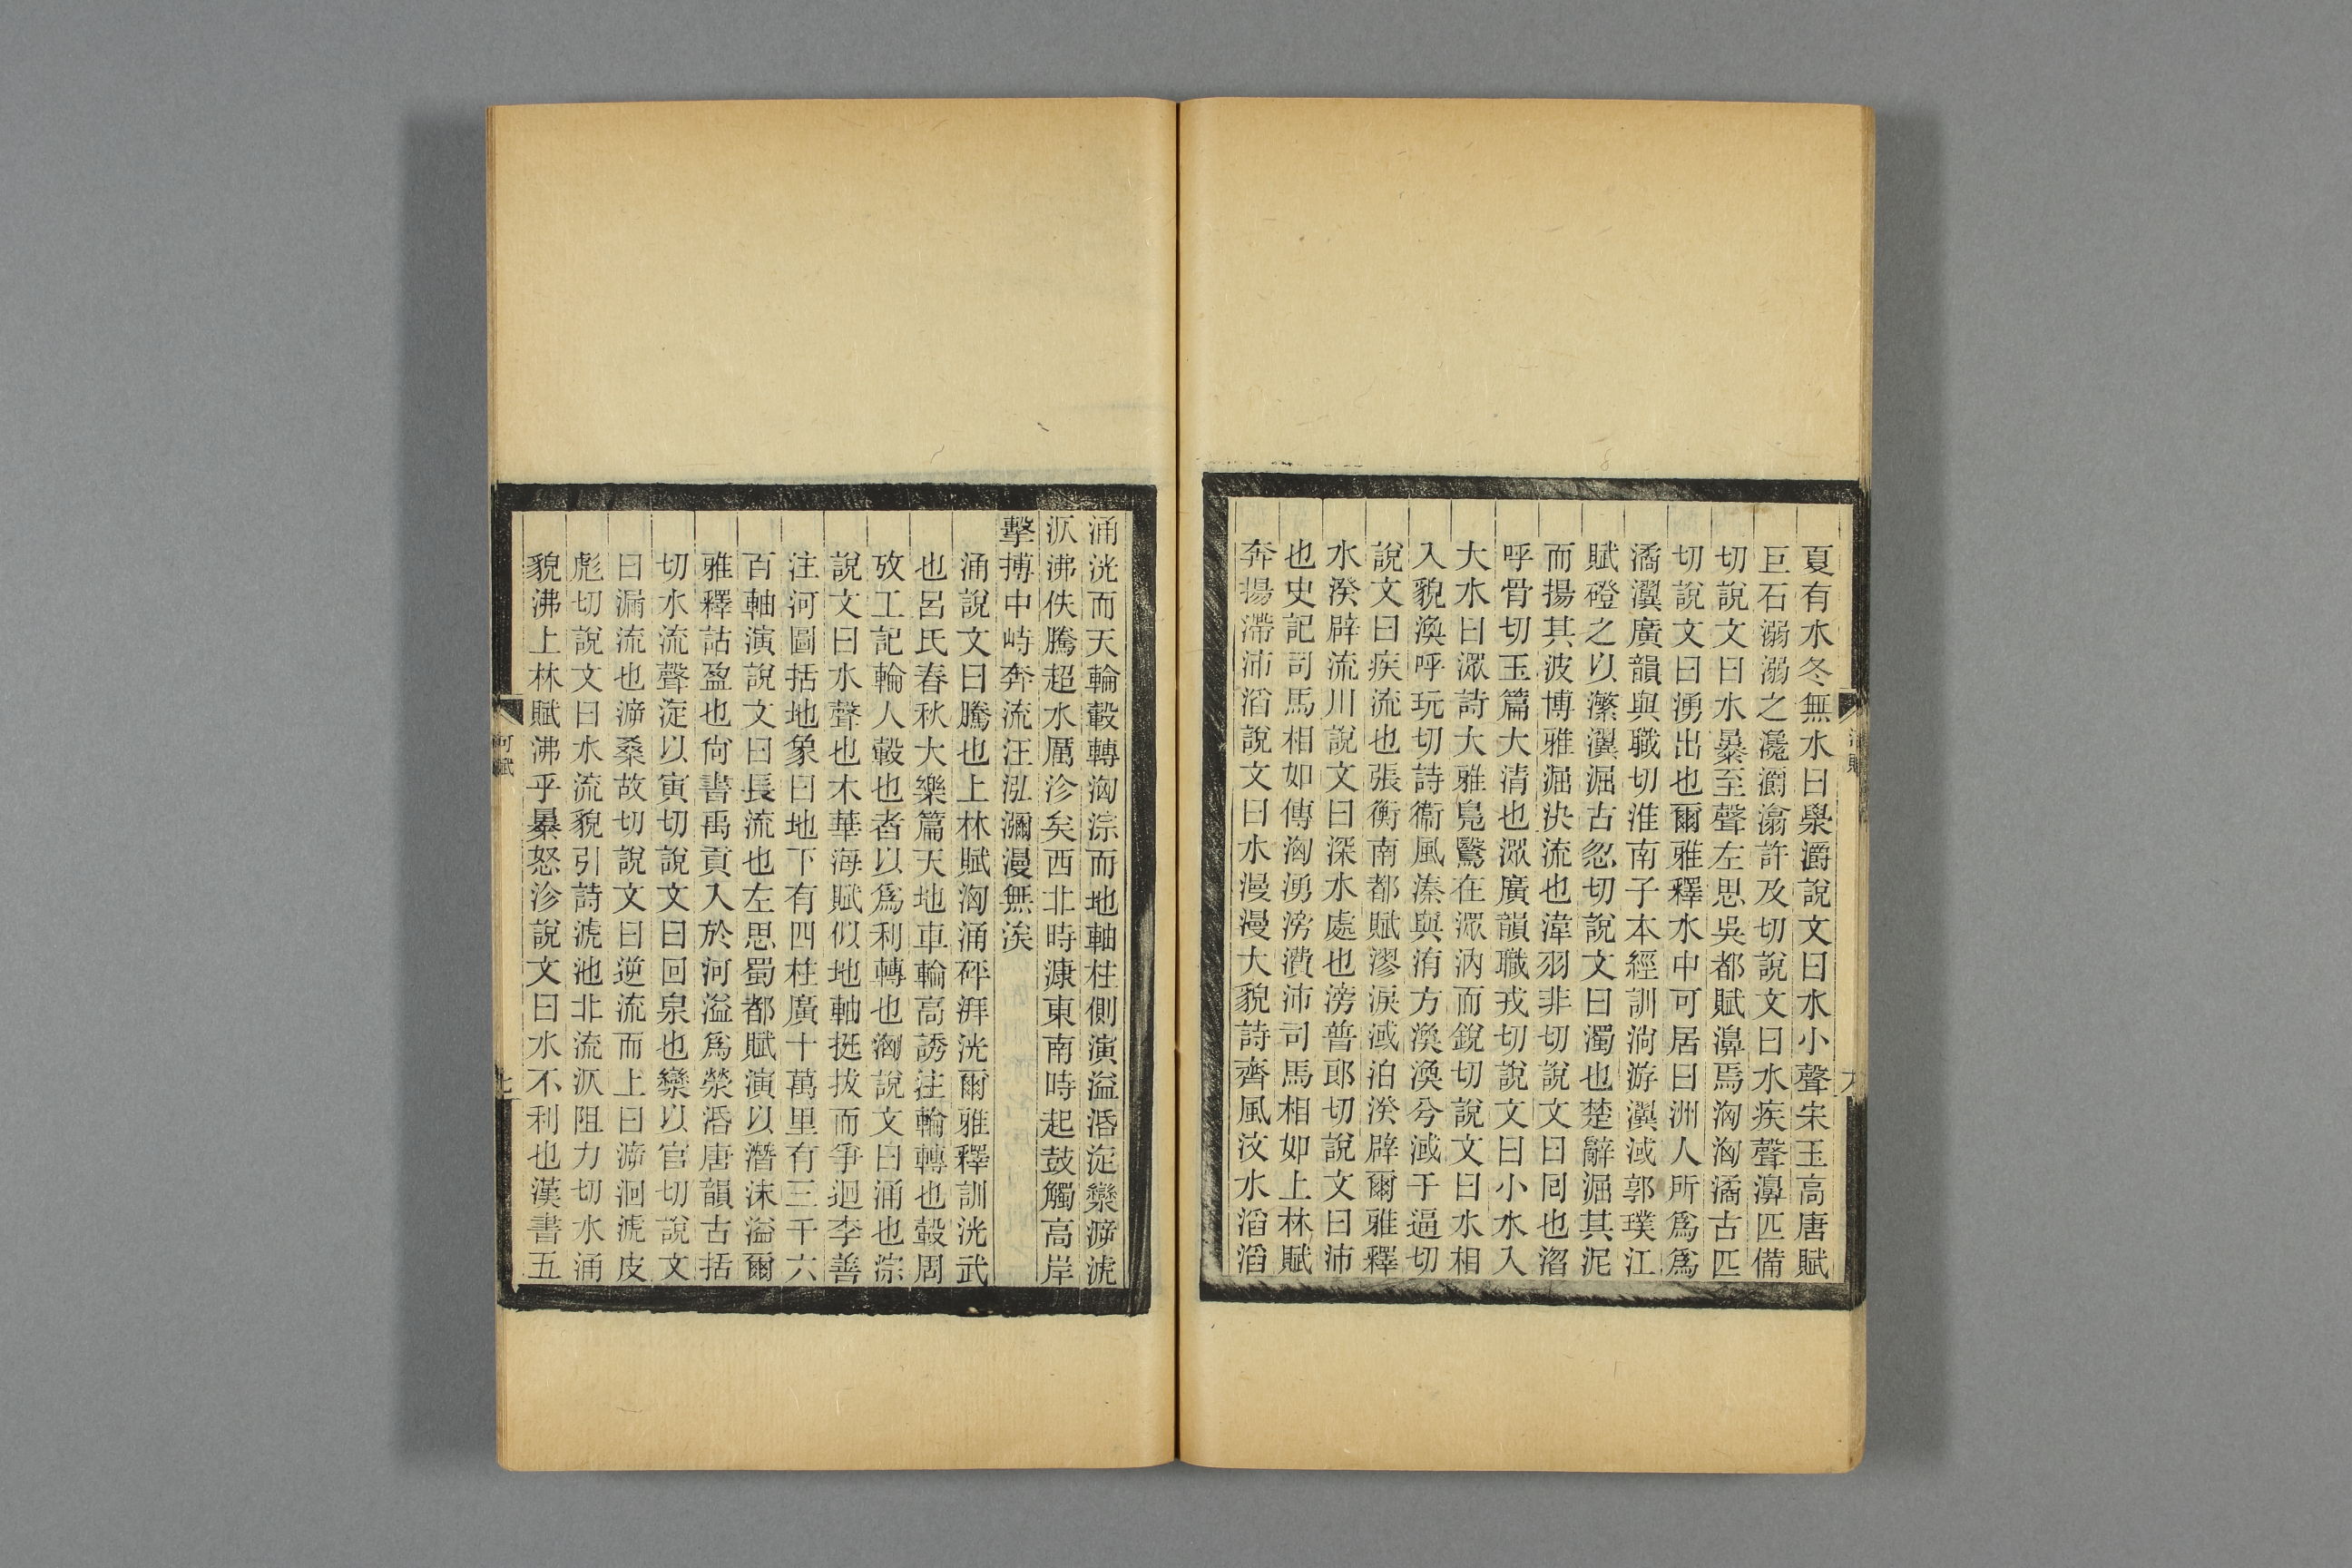 夏有水冬無水曰澩灂說文曰水小聲宋玉高唐賦
巨石溺溺之瀺灂潝許及切說文曰水疾聲濞匹備
切說文曰水暴至聲左思吳都賦濞焉洶洶潏古匹
切說文曰湧出也爾雅釋水中可居曰洲人所爲爲
潏瀷廣韻與職切淮南子本經訓淌游瀷淢郭璞江
賦磴之以瀿瀷淈古忽切說文曰濁也楚辭淈其泥
而揚其波博雅淈決流也湋羽非切說文曰回也淴
呼骨切玉篇大清也潀廣韻職戎切說文曰小水入
大水曰潀詩大雅鳧鷖在潀汭而銳切說文曰水相
入貌渙呼玩切詩衞風溱與洧方渙渙兮淢于逼切
說文曰疾流也張衡南都賦漻淚淢汩湀辟爾雅釋
水湀辟流川說文曰深水處也滂普郎切說文曰沛
也史記司馬相如傳洶湧滂㵒沛司馬相如上林賦
奔揚滯沛滔說文曰水漫漫大貌詩齊風汶水滔滔
河賦
六
涌洸而天輪轂轉洶淙而地軸柱側演溢涽淀灓㴑淲
㲹沸佚騰超水厲沴矣西北時漮東南時起鼓觸高岸
擊搏中峙奔流汪泓瀰漫無涘
涌說文曰騰也上林賦洶涌砰湃洸爾雅釋訓洸武
也呂氏春秋大樂篇天地車輪高誘注輪轉也轂周
攷工記輪人轂也者以爲利轉也洶說文曰涌也淙
說文曰水聲也木華海賦似地軸挺拔而爭迴李善
注河圖括地象曰地下有四柱廣十萬里有三千六
百軸演說文曰長流也左思蜀都賦演以潛沫溢爾
雅釋詁盈也尙書禹貢入於河溢爲滎涽唐韻古括
切水流聲淀以寅切說文曰回泉也灓以官切說文
曰漏流也㴑桑故切說文曰逆流而上曰㴑洄淲皮
彪切說文曰水流貌引詩淲池北流㲹阻力切水涌
貌沸上林賦沸乎暴怒沴說文曰水不利也漢書五
河賦
七